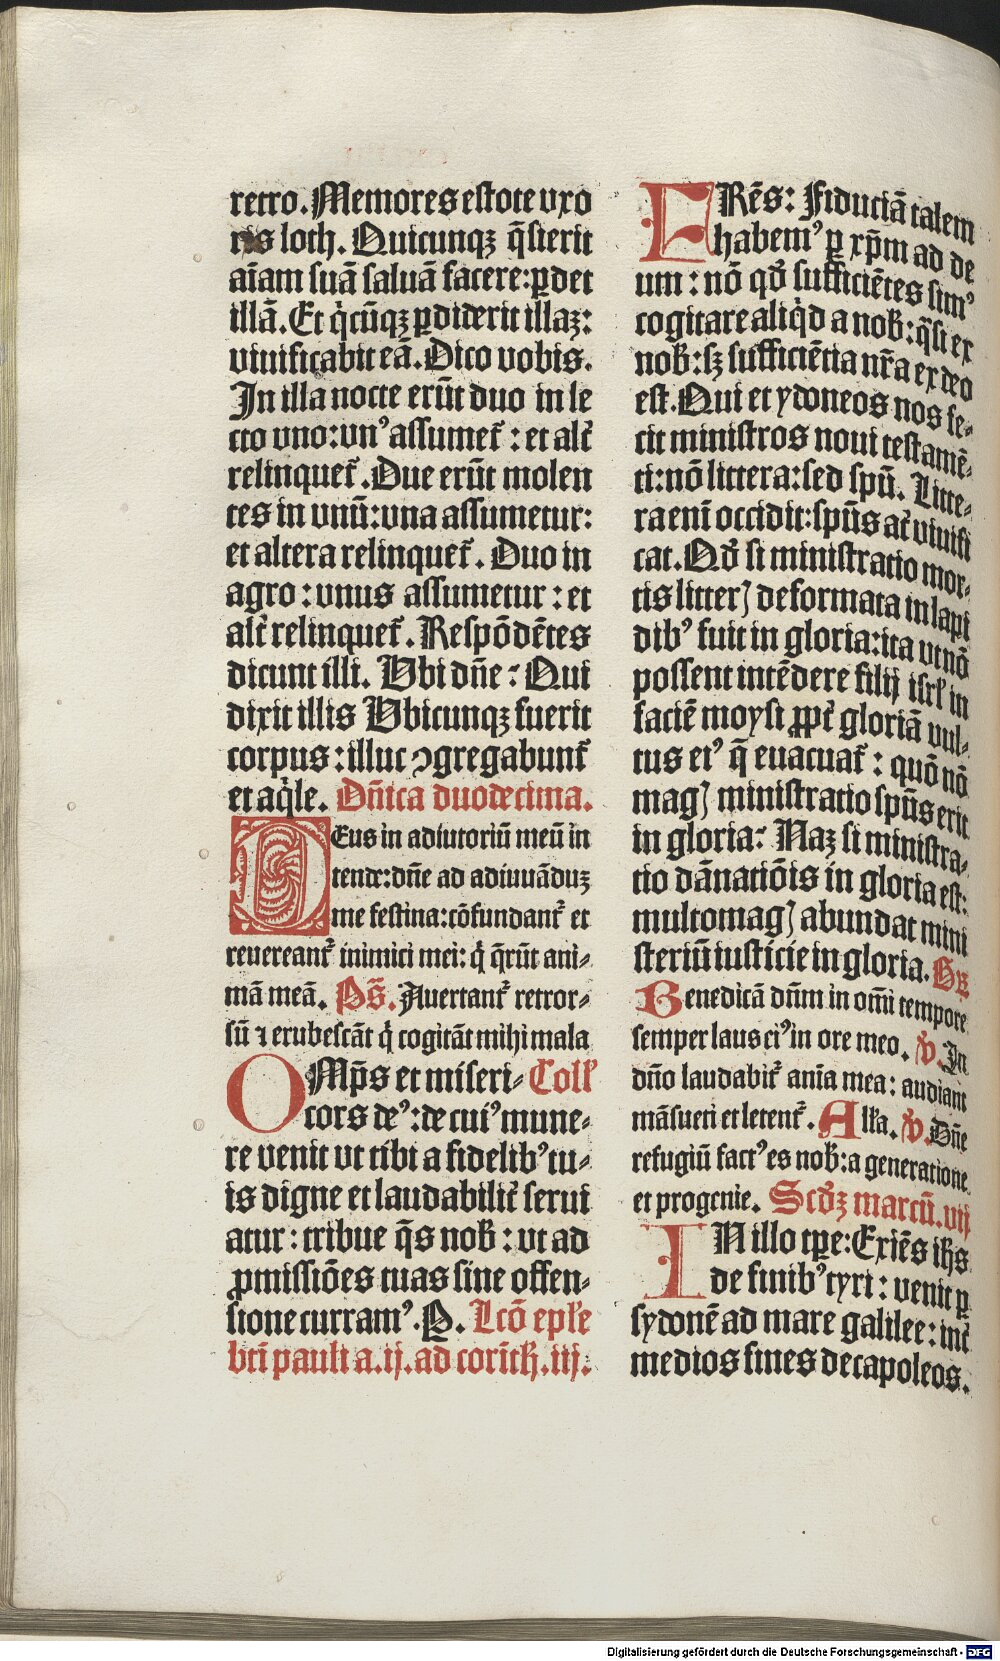 retro. Memores estote vxo
ris loth. Quicunqꝫ q̄sierit
aīam suā saluā facere: ꝑdet
illā. Et q̇cūqꝫ ꝑdiderit illaꝫ:
viuificabit eā. Dico vobis.
In illa nocte erūt duo in le
cto vno: vn⁹ assumet᷑ : et alt̄
relinquet᷑. Due erūt molen
tes in vnū: vna assumetur:
et altera relinquet᷑. Duo in
agro : vnus assumetur : et
alt̄ relinquet᷑. Respōdētes
dicunt illi. Vbi dn̄e : Qui
dixit illis Vbicunqꝫ fuerit
corpus : illuc ꝯgregabunt᷑
et aq̇le. Dn̄ica duodecima.
DEus in adiutoriū meū in
tende: dn̄e ad adiuuāduꝫ
me festina: cōfundant᷑ et
reuereant᷑ inimici mei: q̇ q̄rūt ani⸗
mā meā. Ps̄. Auertant᷑ retror⸗
sū ⁊ erubescāt q̇ cogitāt mihi mala
OMp̄s et miseri⸗ Coll̕
cors de⁹: de cui⁹ mune⸗
re venit vt tibi a fidelib⁹ tu⸗
is digne et laudabilit̄ serui
atur : tribue q̄s nob̕ : vt ad
ꝓmissiōes tuas sine offen⸗
sione curram⁹. P. Lcō epl̕e
bt̄i pauli a. ij. ad corīth. iij.
FRēs: Fiduciā talem
habem⁹ ꝑ xp̄m ad de
um : nō qd̕ sufficiētes sim⁹
cogitare aliq̇d a nob̕: q̄si ex
nob̕: sꝫ sufficiētia nr̄a ex deo
est. Qui et ydoneos nos fe⸗
cit ministros noui testamē⸗
ti: nō littera: sed spū. Litte⸗
ra enī occidit: spūs at̄ viuifi
cat. Qd̕ si ministratio mor⸗
tis litterꝭ deformata in lapi
dib⁹ fuit in gloria: ita vt nō
possent intēdere filij isrl̕ in
faciē moysi ꝓpt̄ gloriā vul⸗
tus ei⁹ q̄ euacuat᷑ : quō nō
magꝭ ministratio spūs erit
in gloria: Naꝫ si ministra⸗
tio dānatiōis in gloria est:
multomagꝭ abundat mini
steriū iusticie in gloria. Gꝶ
Benedicā dn̄m in om̄i tempore
semper laus ei⁹ in ore meo. V̕. In
dn̄o laudabit᷑ anīa mea : audiant
māsueti et letent᷑. All̕a. V̕. Dn̄e
refugiū fact⁹ es nob̕: a generatione
et progenie. Scd̕ꝫ marcū. vij
IN illo tꝑe: Exiēs ih̄s
de finib⁹ tyri : venit ꝑ
sydonē ad mare galilee: int̄
medios fines decapoleos.
Digitalisierung gefördert durch die Deutsche Forschungsgemeinschaft - DFG